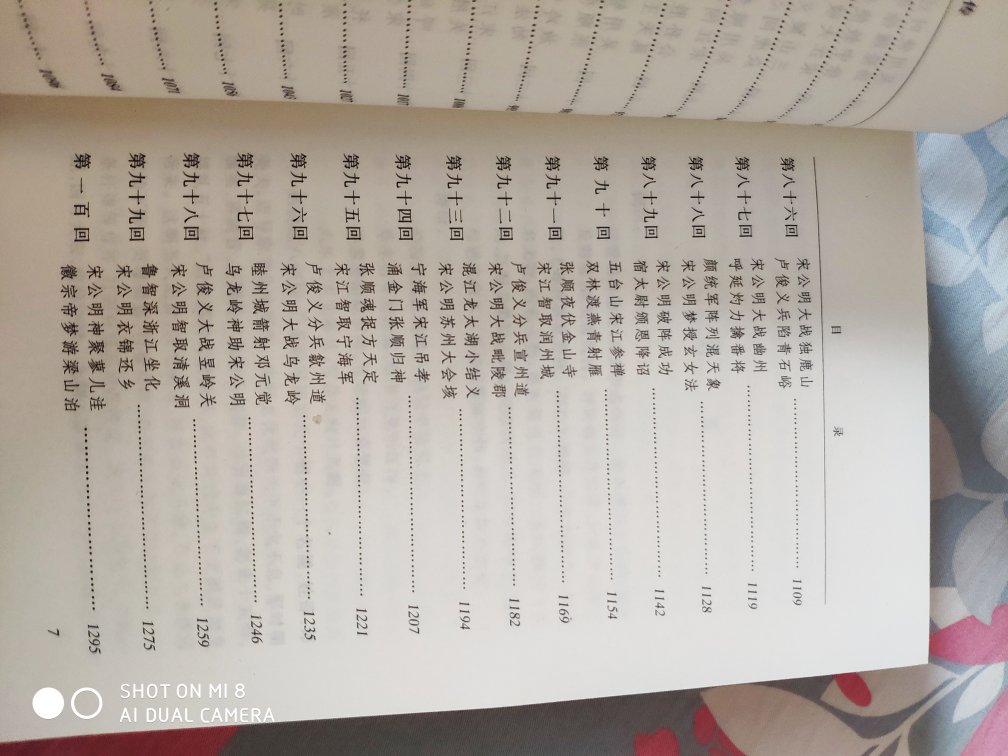 目 录
第八十六回 宋公明大战独鹿山
卢俊义兵陷青石峪 …… 1109
第八十七回 宋公明大战幽州
呼延灼力擒番将 …… 1119
第八十八回 颜统军阵列混天象
宋公明梦授玄女法 …… 1128
第八十九回 宋公明破阵成功
宿太尉颁恩降诏 …… 1142
第九十回 五台山宋江参禅
双林渡燕青射雁 …… 1154
第九十一回 张顺夜伏金山寺
宋江智取润州城 …… 1169
第九十二回 卢俊义分兵宣州道
宋公明大战毗陵郡 …… 1182
第九十三回 混江龙太湖小结义
宋公明苏州大会垓 …… 1194
第九十四回 宁海军宋江吊孝
涌金门张顺归神 …… 1207
第九十五回 张顺魂捉方天定
宋江智取宁海军 …… 1221
第九十六回 卢俊义分兵歙州道
宋公明大战乌龙岭 …… 1235
第九十七回 睦州城箭射邓元觉
乌龙岭神助宋公明 …… 1246
第九十八回 卢俊义大战昱岭关
宋公明智取清溪洞 …… 1259
第九十九回 鲁智深浙江坐化
宋公明衣锦还乡 …… 1275
第一百回 宋公明神聚蓼儿洼
徽宗帝梦游梁山泊 …… 1295
7
SHOT ON MI 8
AI DUAL CAMERA